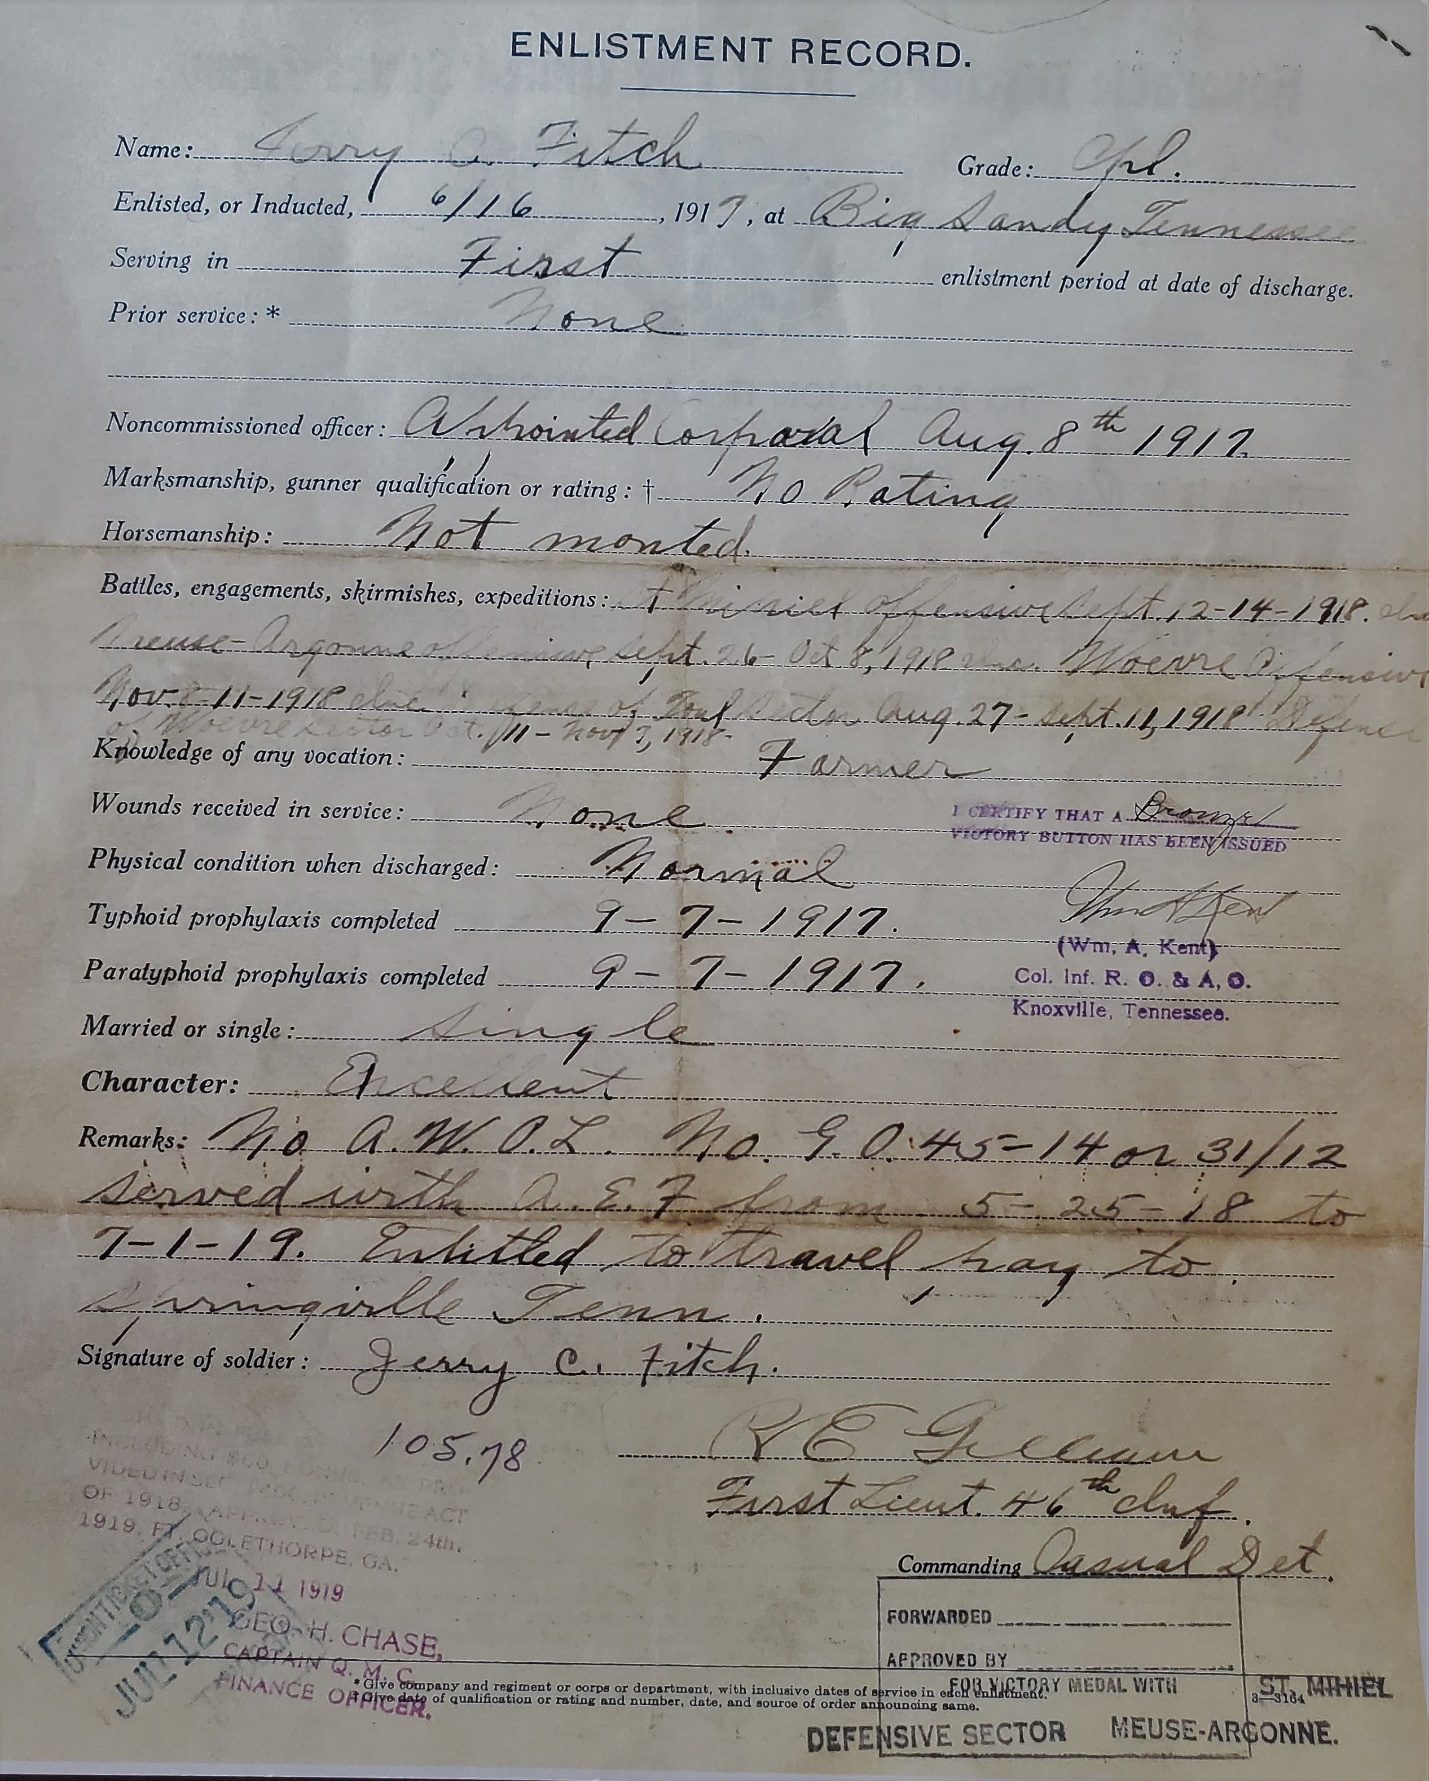 ENLISTMENT RECORD.
Name: Jerry C. Fitch Grade: Cpl.
Enlisted, or Inducted, 6/16, 1917, at Big Sandy Tennessee
Serving in First enlistment period at date of discharge.
Prior service: * None
Noncommissioned officer: Appointed Corporal Aug. 8th 1917.
Marksmanship, gunner qualification or rating: † No Rating
Horsemanship: Not monted.
Battles, engagements, skirmishes, expeditions: St Mihiel offensive Sept. 12-14-1918. inc.
Meuse-Argonne offensive Sept. 26- Oct 8, 1918 inc. Woevre Offensive
Nov. 8-11-1918 inc. Defense of Toul Sector Aug. 27- Sept. 11, 1918 Defense
of Woevre Sector Oct. 11- Nov 7, 1918-
Knowledge of any vocation: Farmer
Wounds received in service: None.
I CERTIFY THAT A Bronze
VICTORY BUTTON HAS BEEN ISSUED
Physical condition when discharged: Normal
Typhoid prophylaxis completed 9-7-1917.
Wm A Kent
(Wm. A. Kent)
Paratyphoid prophylaxis completed 9-7-1917.
Col. Inf. R. O. & A. O.
Knoxville, Tennessee.
Married or single: Single
Character: Excellent
Remarks: No A.W.O.L. No. G.O. 45-14 or 31/12
served with A.E.F from 5-25-18 to
7-1-19. Entitled to travel pay to
Springville Tenn.
Signature of soldier: Jerry C. Fitch.
105.78
R E Gilliam
First Lieut. 46th Inf.
INCLUDING $60 BONUS, AS PRO-
VIDED IN SEC. 1406, REVENUE ACT
OF 1918, APPROVED, FEB. 24th,
1919, FT. OGLETHORPE, GA.
JUL 11 1919
GEO. H. CHASE,
CAPTAIN Q. M. C.
FINANCE OFFICER.
UNION TICKET OFFICE
JUL 12 '19
Commanding Casual Det.
FORWARDED
APPROVED BY
FOR VICTORY MEDAL WITH ST. MIHIEL
DEFENSIVE SECTOR MEUSE-ARGONNE.
* Give company and regiment or corps or department, with inclusive dates of service in each enlistment.
† Give date of qualification or rating and number, date, and source of order announcing same.
3—3164